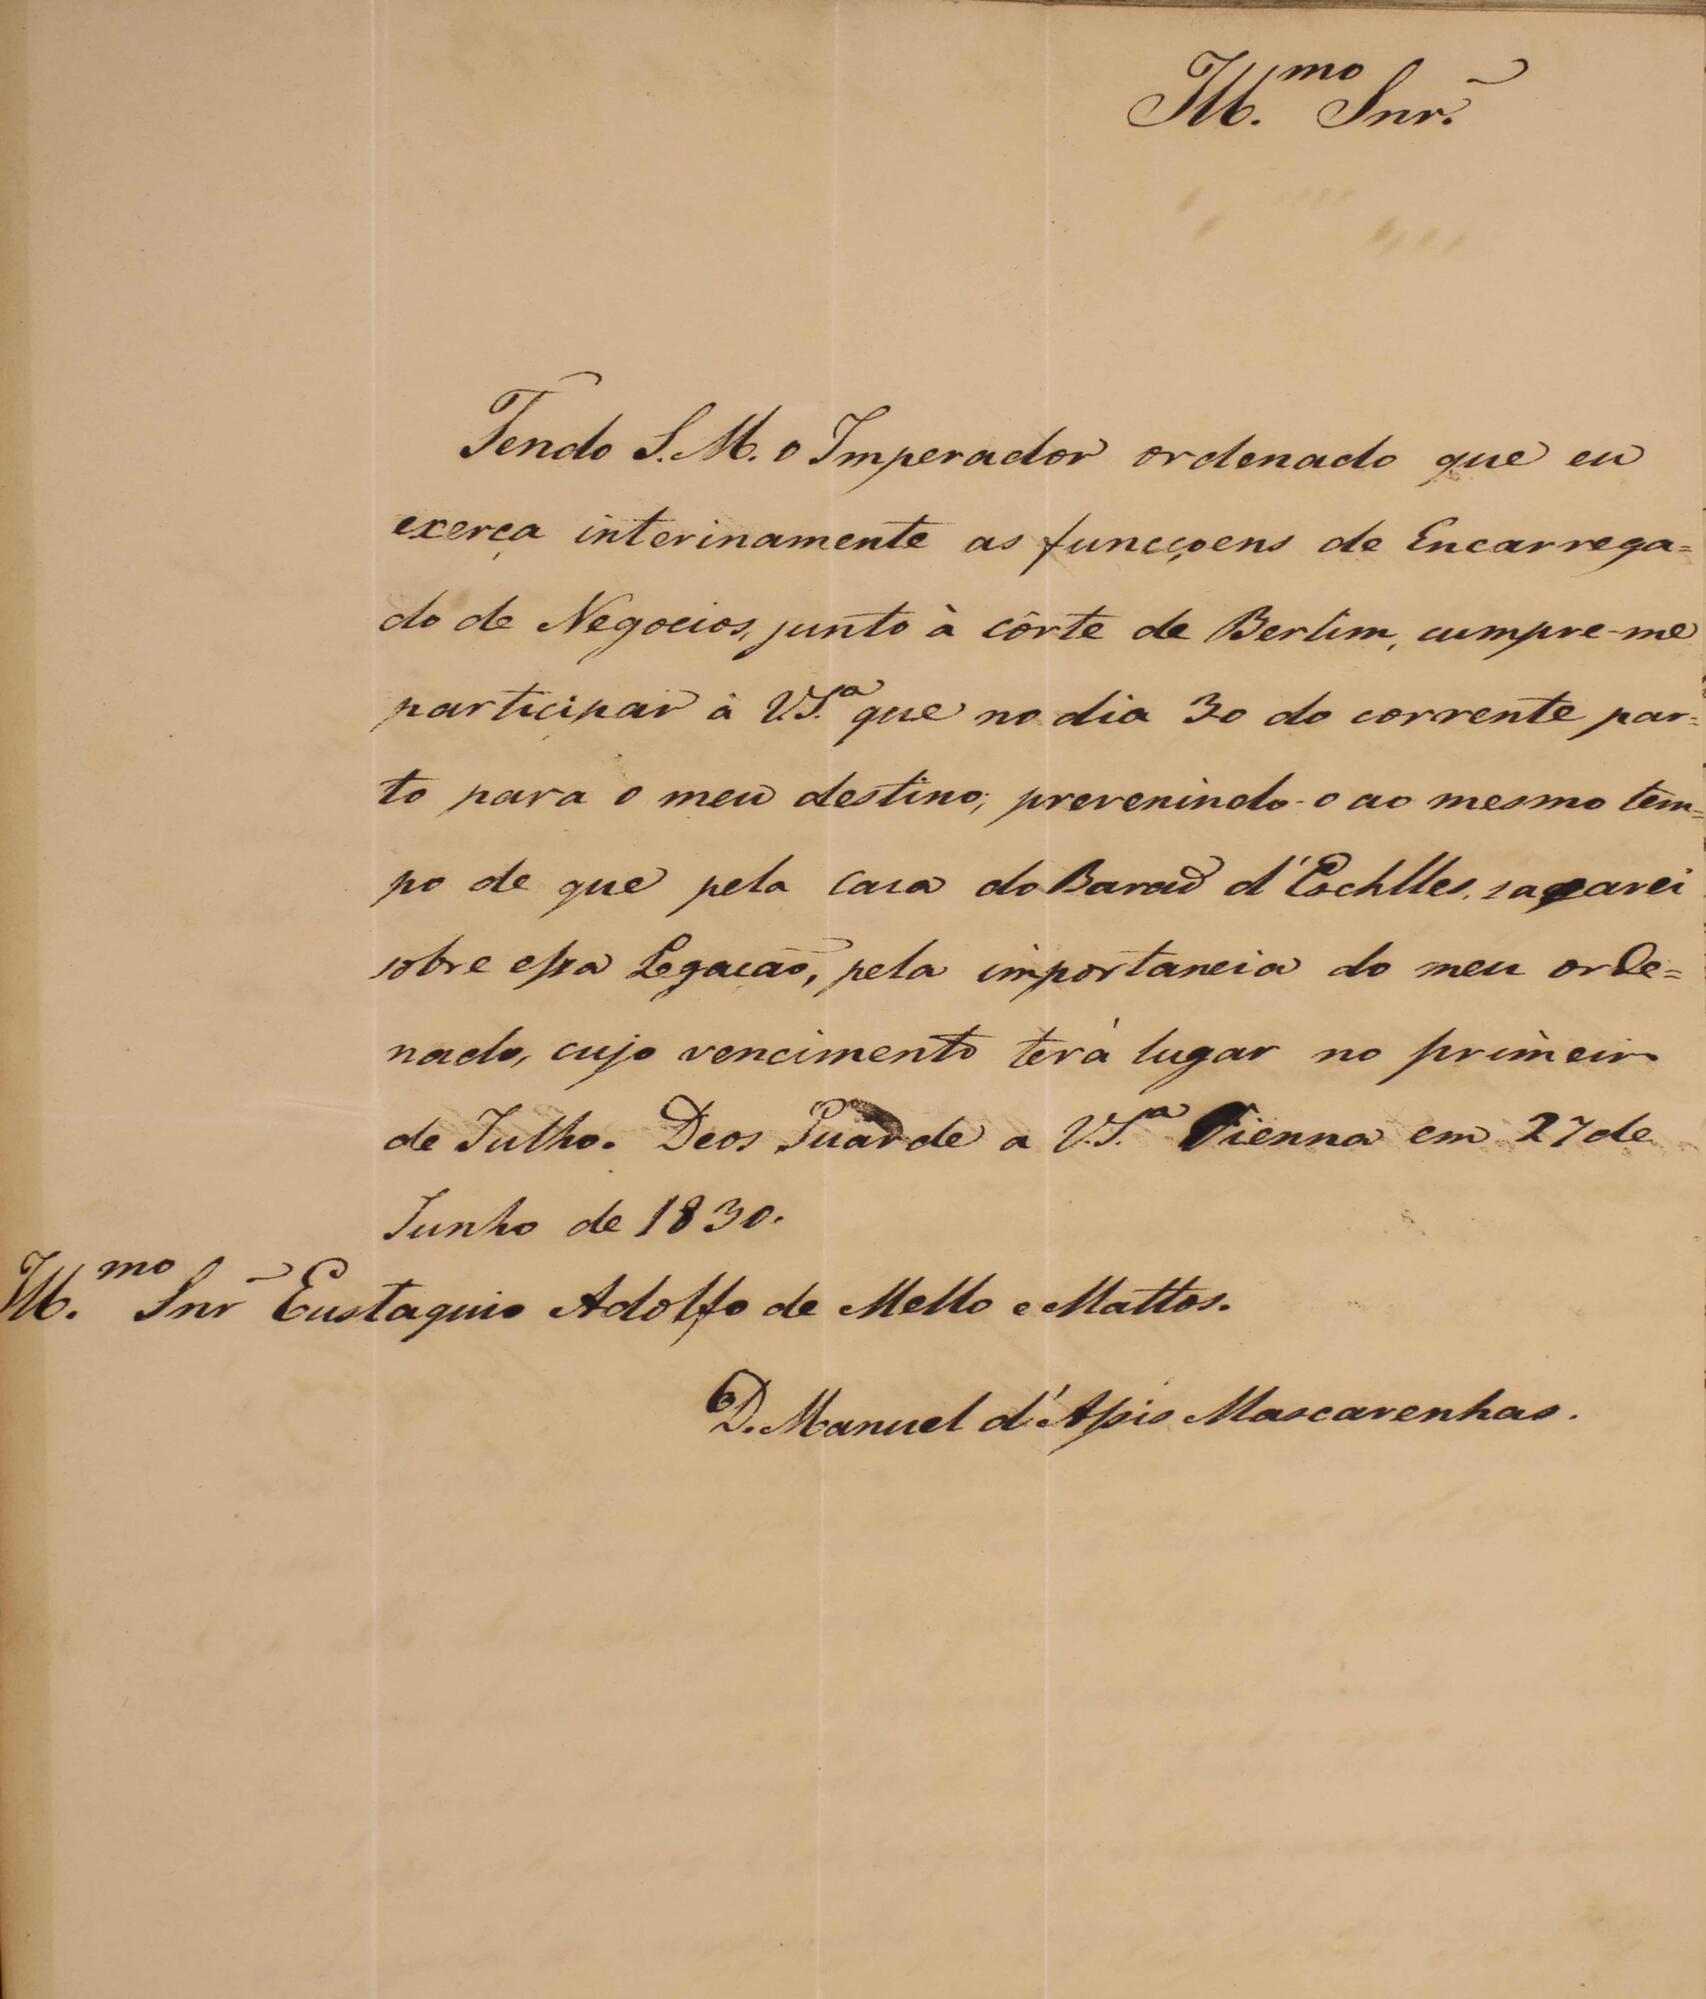 Ill.mo Snr.
Tendo S. M. o Imperador ordenado que eu
exerça interinamente as funcçoens de Encarrega=
do de Negocios, junto à côrte de Berlim, cumpre-me
participar à V.S.a que no dia 30 do corrente par=
to para o meu destino; prevenindo-o ao mesmo tem=
po de que pela casa do Barao d'Eschlles, sacarei
sobre essa Legação, pela importancia do meu orde=
nado, cujo vencimento terá lugar no primeiro
de Julho. Deos Guarde a V.S.a Vienna em 27 de
Junho de 1830.
Ill.mo Snr Eustaquio Adolfo de Mello e Mattos.
D. Manuel d'Assis Mascarenhas.